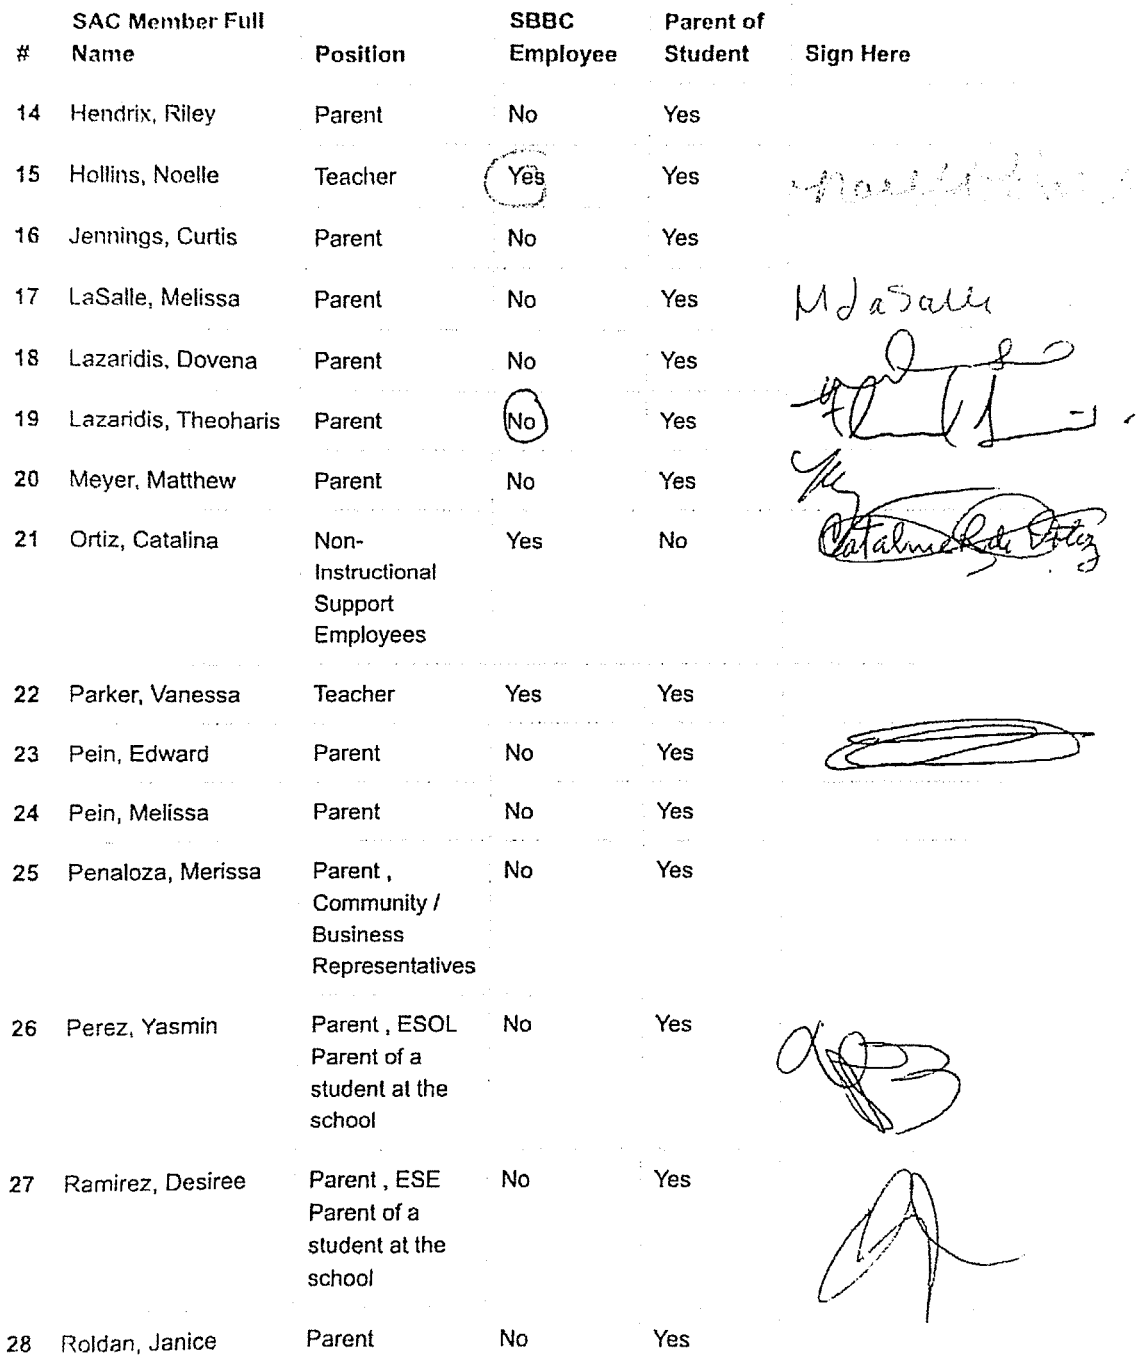 # SAC Member Full Name Position SBBC Employee Parent of Student Sign Here
14 Hendrix, Riley Parent No Yes
15 Hollins, Noelle Teacher Yes Yes
16 Jennings, Curtis Parent No Yes
17 LaSalle, Melissa Parent No Yes M LaSalle
18 Lazaridis, Dovena Parent No Yes
19 Lazaridis, Theoharis Parent No Yes
20 Meyer, Matthew Parent No Yes
21 Ortiz, Catalina Non- Yes No
Instructional
Support
Employees
22 Parker, Vanessa Teacher Yes Yes
23 Pein, Edward Parent No Yes
24 Pein, Melissa Parent No Yes
25 Penaloza, Merissa Parent , No Yes
Community /
Business
Representatives
26 Perez, Yasmin Parent , ESOL No Yes
Parent of a
student at the
school
27 Ramirez, Desiree Parent , ESE No Yes
Parent of a
student at the
school
28 Roldan, Janice Parent No Yes